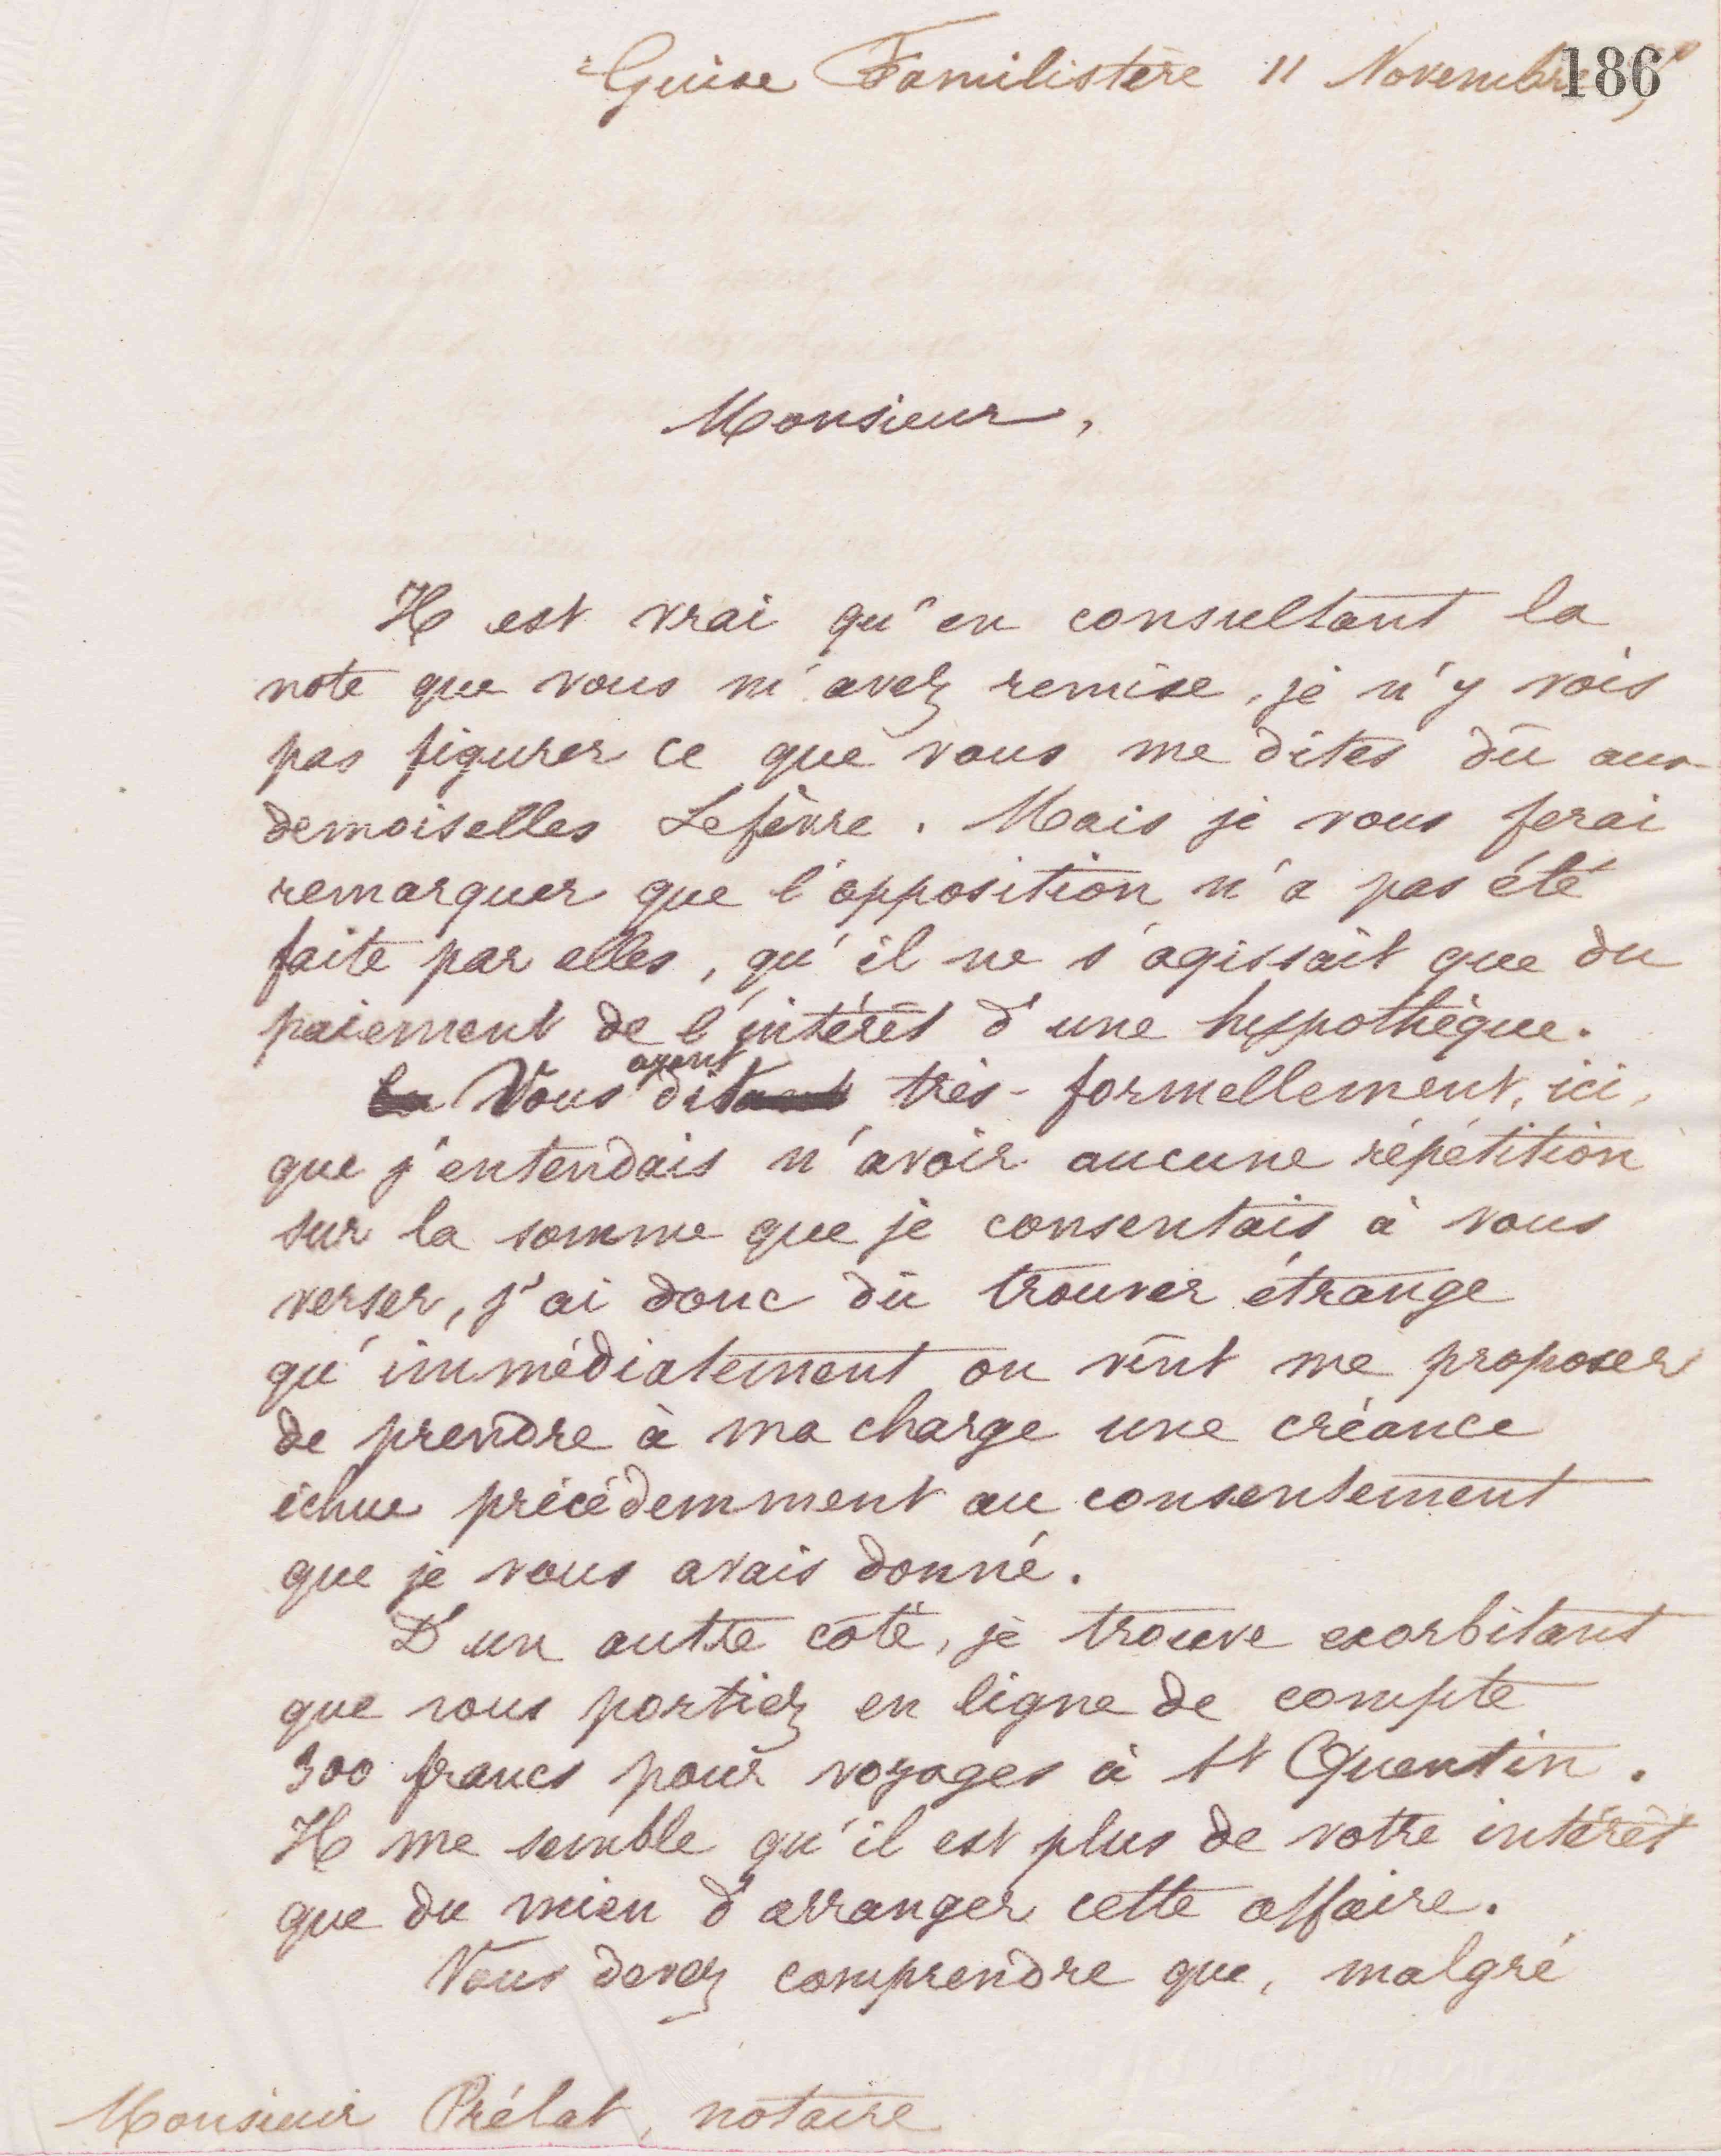 Guise Familistère 11 Novembre
186
Monsieur,
Il est vrai qu'en consultant la
note que vous m'avez remise, je n'y vois
pas figurer ce que vous me dites dû aux
demoiselles Lefèvre. Mais je vous ferai
remarquer que l'opposition n'a pas été
faite par elles, qu'il ne s'agissait que du
paiement de l'intérêt d'une hypothèque.
Vous ayant dit très-formellement, ici,
que j'entendais n'avoir aucune répétition
sur la somme que je consentais à vous
verser, j'ai donc dû trouver étrange
qu'immédiatement on vînt me proposer
de prendre à ma charge une créance
échue précédemment au consentement
que je vous avais donné.
D'un autre côté, je trouve exorbitant
que vous portiez en ligne de compte
300 francs pour voyages à St Quentin.
Il me semble qu'il est plus de votre intérêt
que du mien d'arranger cette affaire.
Vous devez comprendre que, malgré
Monsieur Prélat, notaire